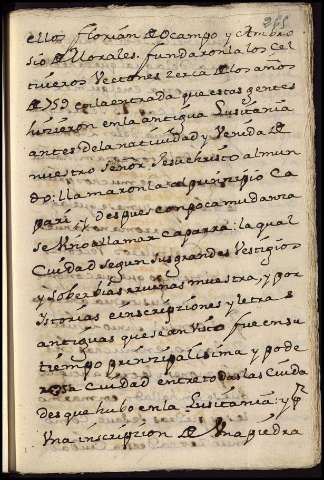 255
ello, florián de Ocampo y Ambro
sio de Morales. fundaronla los Cel
tiveros Vectones zerca de los años
de 759 en la entrada que estas gentes
hizieron en la antigua Lusitania
antes de la natividad y Venida de
nuestro Señor Jesuchristo al mun
do: llamaronla al prinzipio Ca
pari, y despues con poca mudanza
se vino a llamar Caparra: la qual
Ciudad segun sus grandes Vestigios
y soberbias ruinas muestra, y por
Istorias e inscripziones y letras
antiguas que se an Visto fue en su
tiempo prinzipalissima y pode
rosa Ciudad entre todas las Ciuda
des que hubo en la Lusitania: y p
Una inscripzion de Una piedra